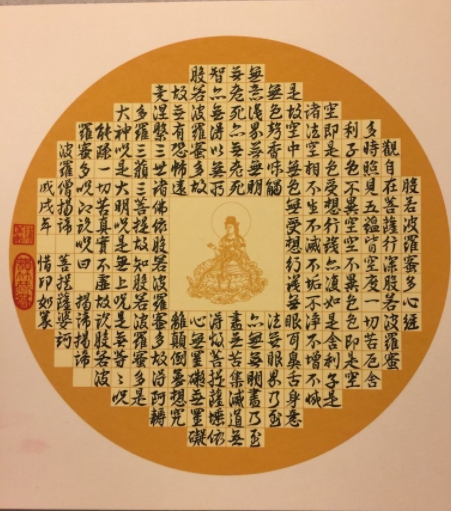 般若波羅蜜多心經
觀自在菩薩行深般若波羅蜜
多時照見五蘊皆空度一切苦厄舍
利子色不異空空不異色色即是空
空即是色受想行識亦復如是舍利子是
諸法空相不生不滅不垢不淨不增不減
是故空中無色無受想行識無眼耳鼻舌身意
無色聲香味觸法無眼界乃至
無意識界無無明亦無無明盡乃至
無老死亦無老死盡無苦集滅道無
智亦無得以無所得故菩提薩埵依
般若波羅蜜多故心無罣礙無罣礙
故無有恐怖遠離顛倒夢想究
竟涅槃三世諸佛依般若波羅蜜多故得阿耨
多羅三藐三菩提故知般若波羅蜜多是
大神咒是大明咒是無上咒是無等々咒
能除一切苦真實不虛故說般若波
羅蜜多咒即說咒曰 揭諦揭諦
波羅僧揭諦 菩提薩婆訶
戊戌年